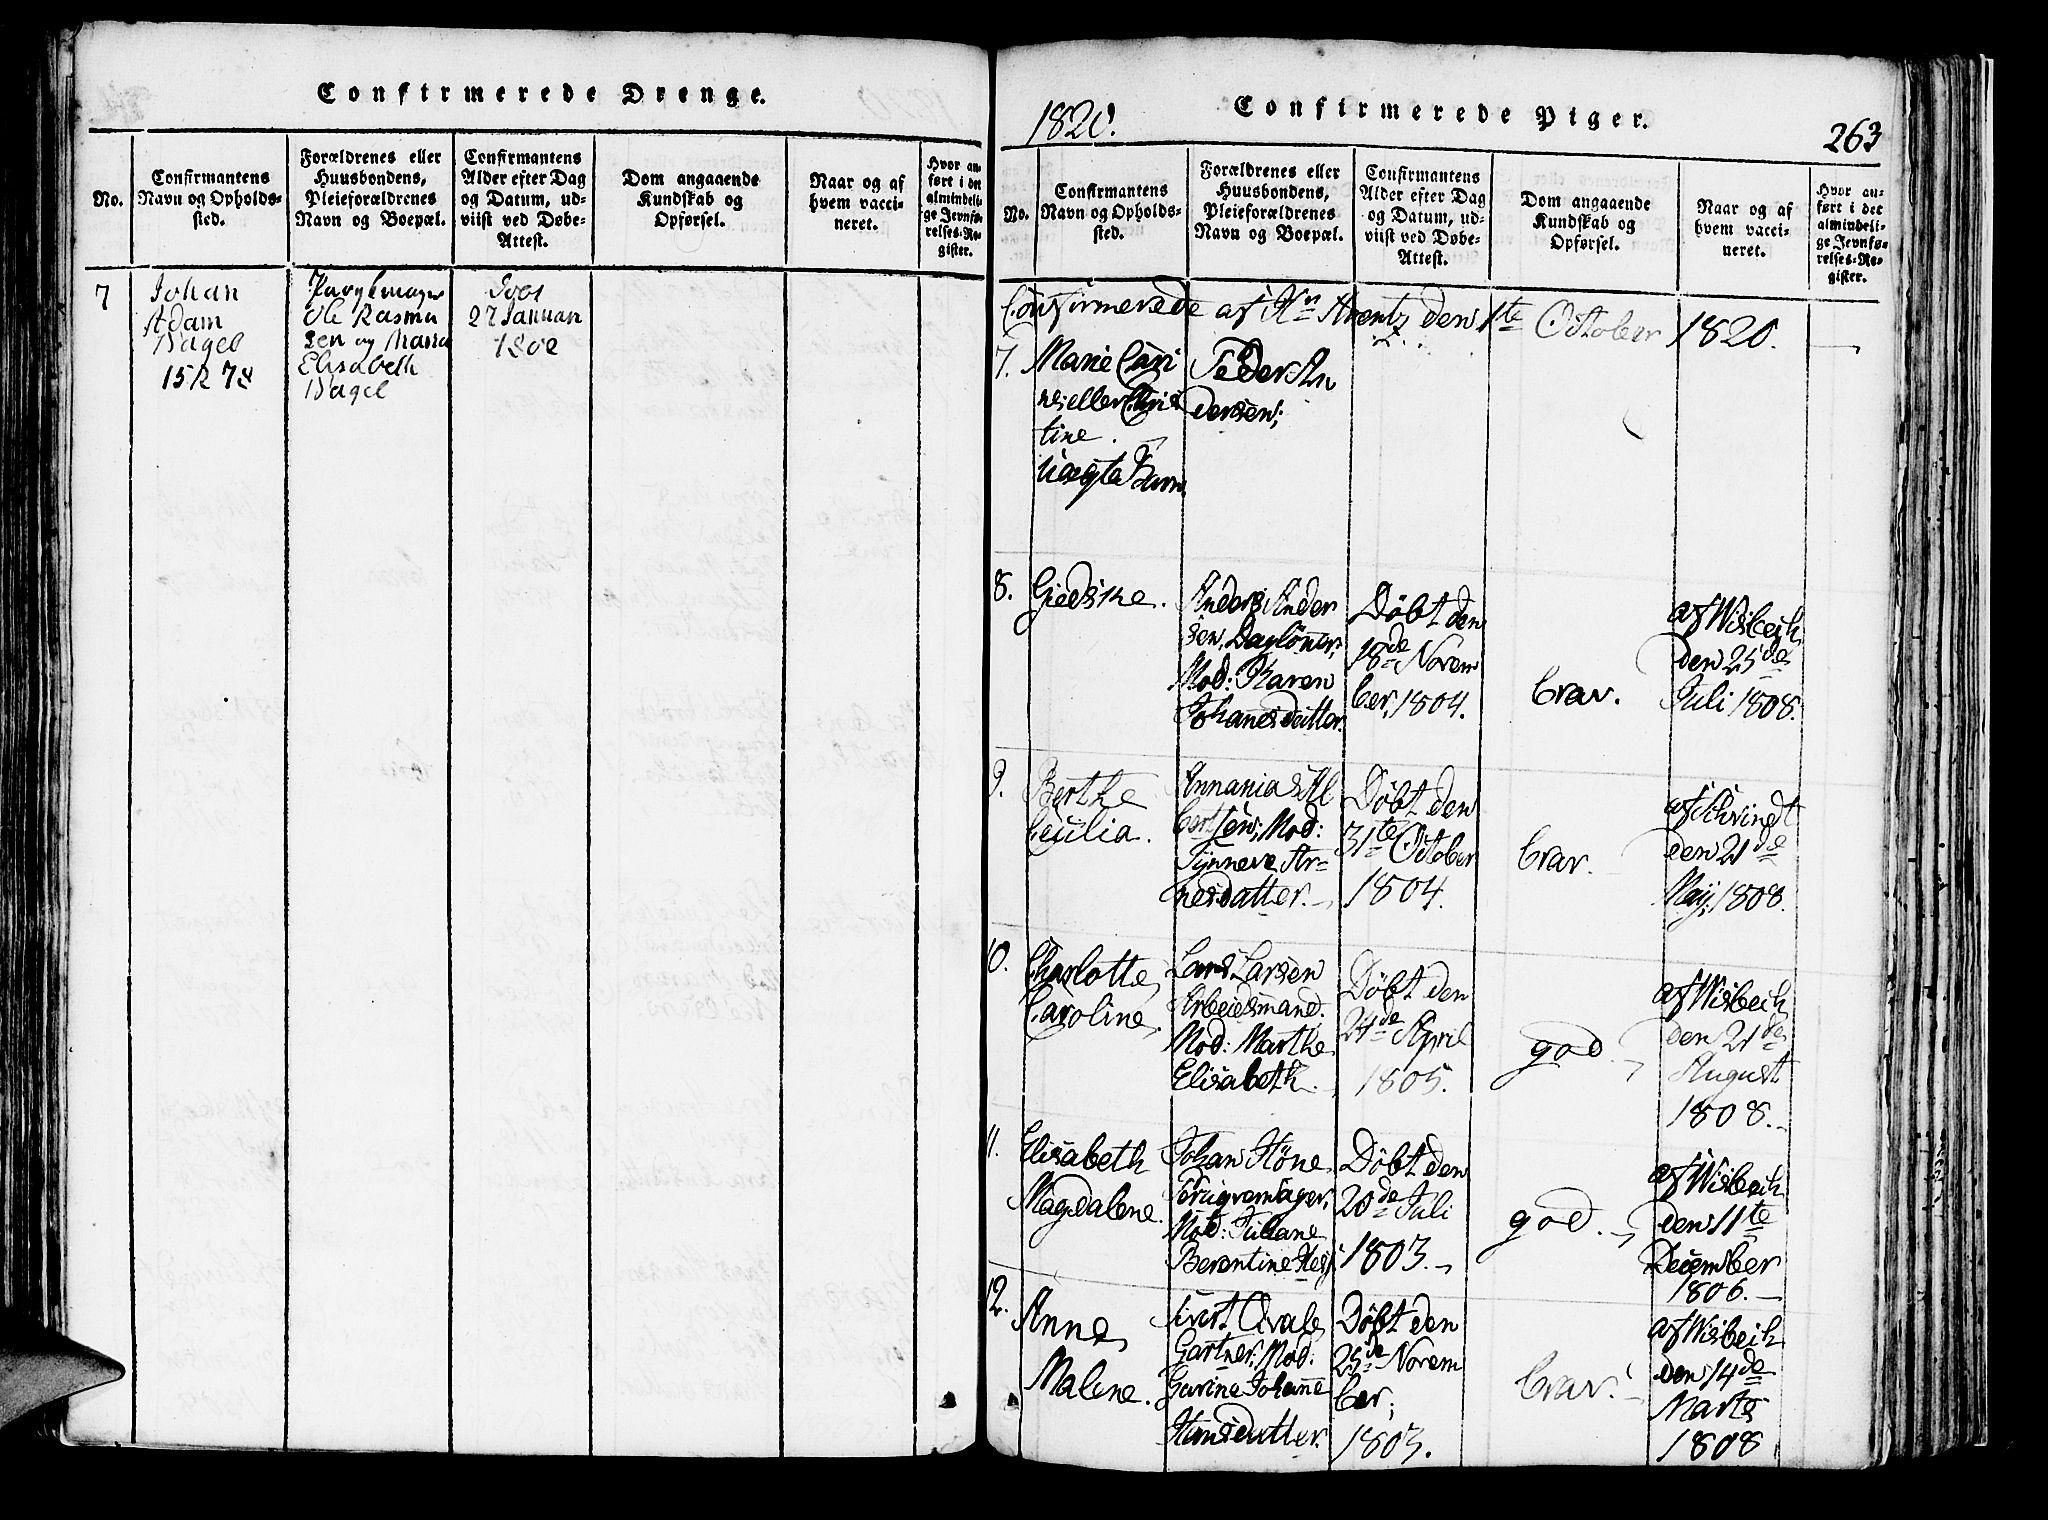 Confirmerede Drenge.
No.
Confirmantens
Navn og Opholds-
sted.
Forældrenes eller
Huusbondens,
Pleieforældrenes
Navn og Boepæl.
Confirmantens
Alder efter Dag
og Datum, ud-
viist ved Døbe-
Attest.
Dom angaaende
Kundskab og
Opførsel.
Naar og af
hvem vacci-
neret.
Hvor an-
ført i det
almindeli-
ge Jevnfø-
relses-Re-
gister.
7
Johan
Adam
Nagel
Ole Rasmu
sen og Maria
Elisabeth
Nagel
27 Januari
1820.
Confirmerede Piger.
263
No.
Confirmantens
Navn og Opholds-
sted.
Forældrenes eller
Huusbondens,
Pleieforældrenes
Navn og Boepæl.
Confirmantens
Alder efter Dag
og Datum, ud-
viist ved Døbe-
Attest.
Dom angaaende
Kundskab og
Opførsel.
Naar og af
hvem vacci-
neret.
Hvor an-
ført i det
almindeli-
ge Jevnfø-
relses-Re-
gister.
Confirmerede af Hr Arentz den 1te October 1820.
7.
Marie Cari
ne eller Chris
tine.
Uægte Barn
Peder An
dersen;
8.
Giedske.
Anders Ander
sen, Daglöner,
Mod: Karen
Johanesdatter.
Döbt den
18de Novem
ber, 1804.
brav.
af Wisbech
den 25de
Juli 1808.
9.
Berthe
Cecilia.
Annanias Al
bertsen; Mod:
Synneve Ar-
nesdatter.
Döbt den
31te October
1804.
brav.
af Schvindt
den 21de
Maij, 1808.
10.
Charlotte
Caroline.
Lars Larsen
Arbeidsmand.
Mod: Marthe
Elisabeth.
Döbt den
24de April
1805.
god.
af Wisbech
den 21de
August
1808.
11.
Elisabeth
Magdalene.
Johan Höne
Mod: Juliane
Berentine
Döbt den
20de Juli
1803.
god.
af Wisbech
den 11te
December
1806.
12.
Anne
Malene.
Sivert Qvale
Gartner, Mod:
Gurine Johanne
Hansdatter.
Döbt den
25de Novem
ber;
1803.
brav.
af Wisbech
den 14de
Marts
1808